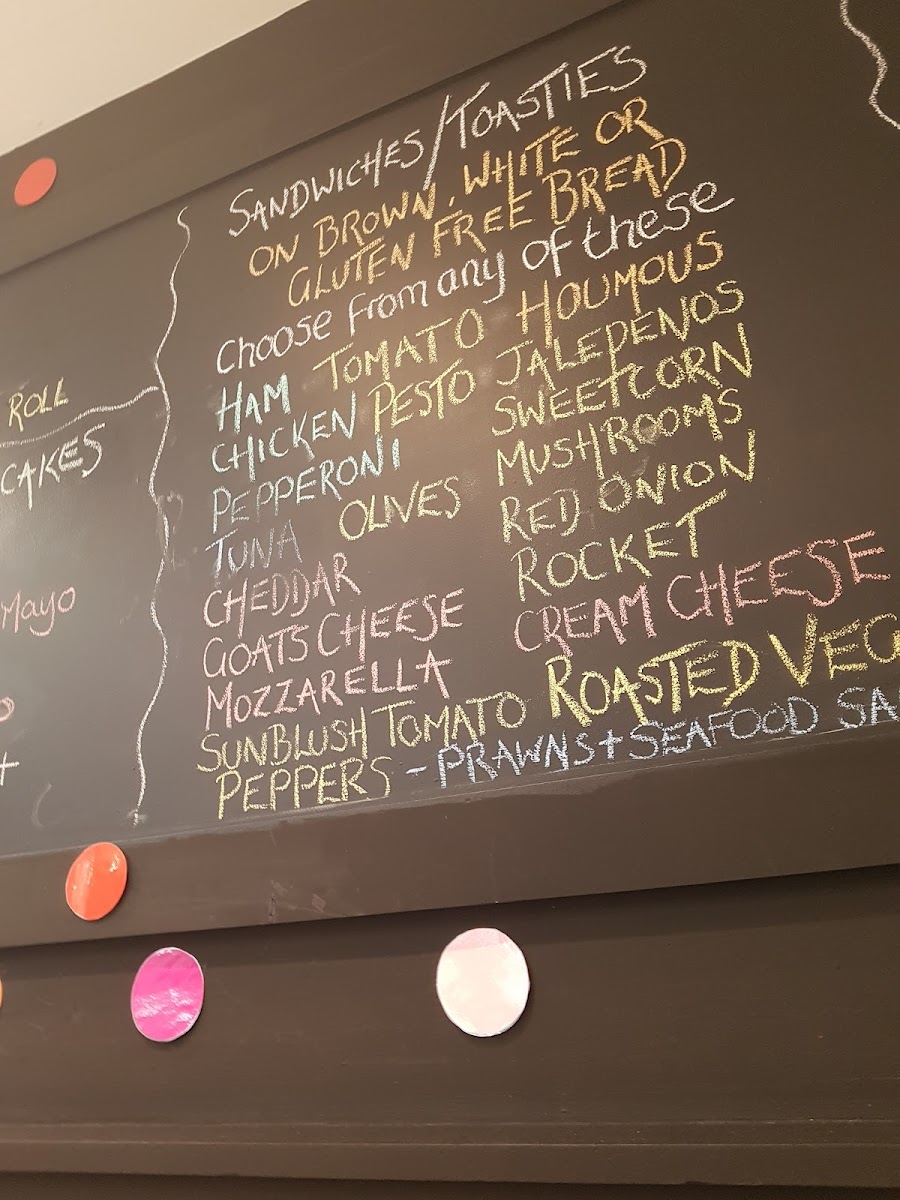 ROLL
CAKES
Mayo
+
SANDWICHES/TOASTIES
ON BROWN, WHITE OR
GLUTEN FREE BREAD
Choose from any of these
HAM TOMATO HOUMOUS
CHICKEN PESTO JALEPENOS
PEPPERONI SWEETCORN
TUNA OLIVES MUSHROOMS
CHEDDAR RED ONION
GOATS CHEESE ROCKET
MOZZARELLA CREAM CHEESE
SUNBLUSH TOMATO ROASTED VEG
PEPPERS - PRAWNS + SEAFOOD SA